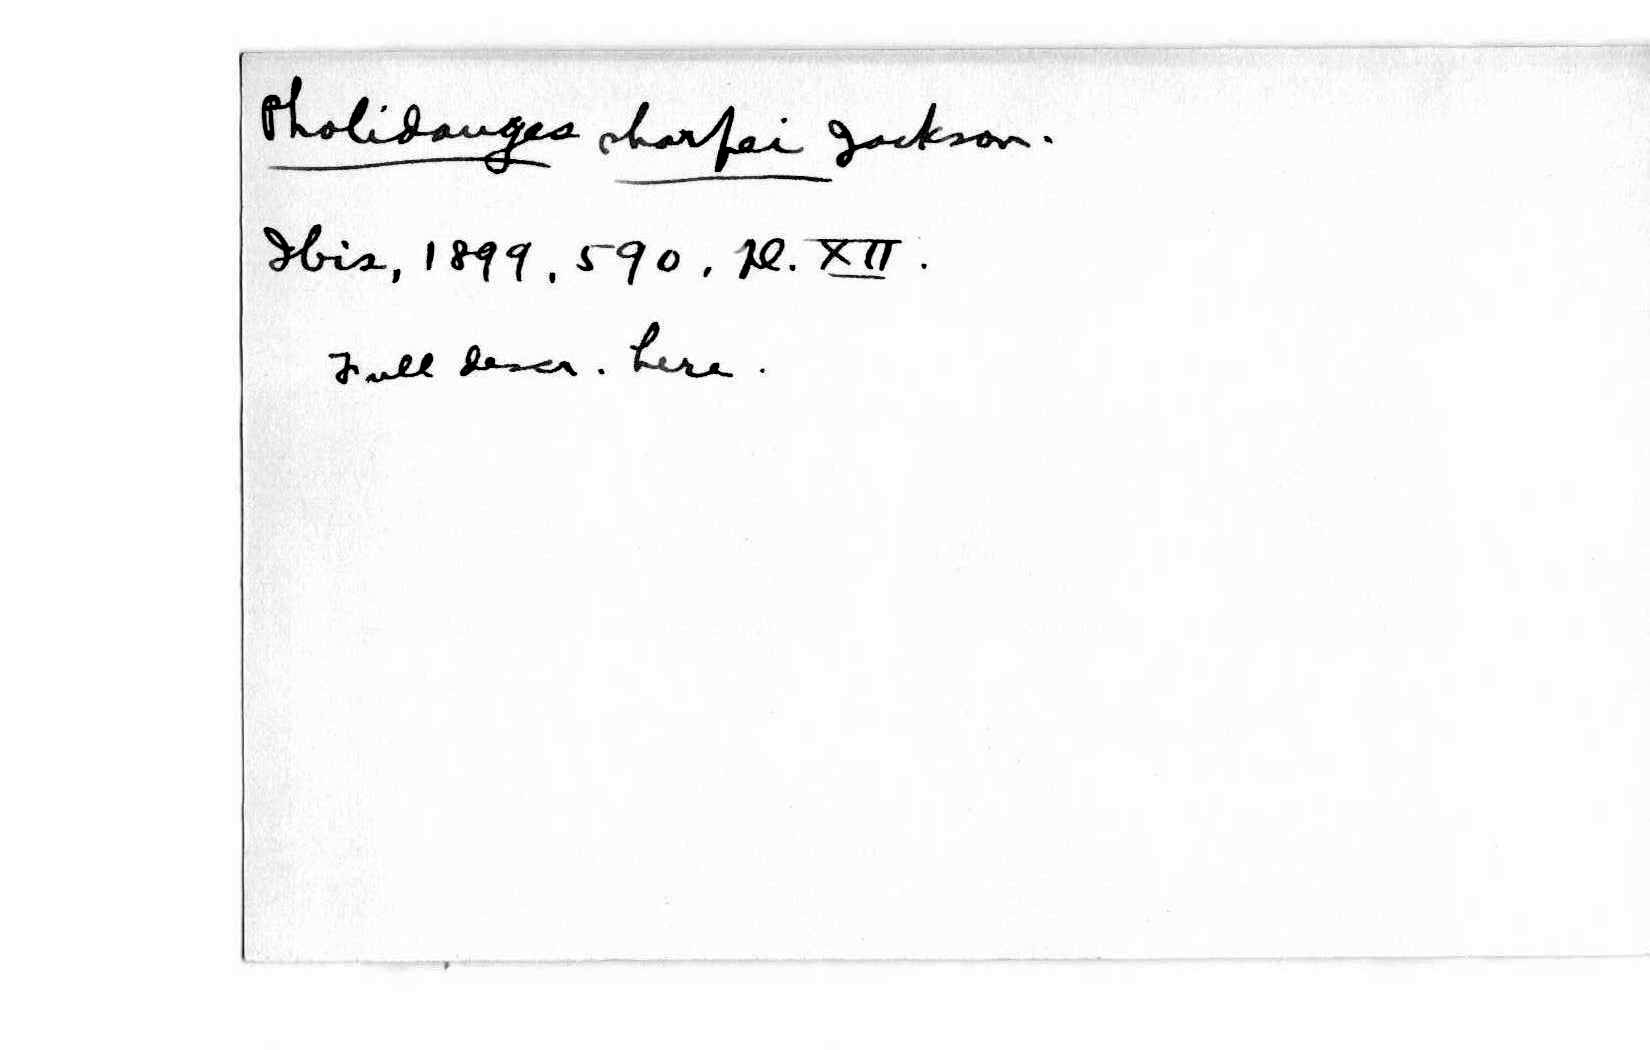 Pholidauges sharpei Jackson.
Ibis, 1899, 590, Pl. XII.
Full descr. here.